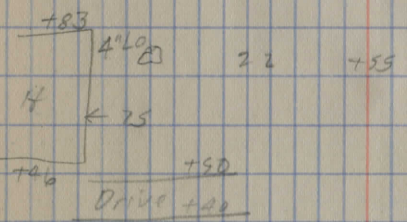 +83
4"LO 22 +55
H
← 25
+46 +50
Drive +40